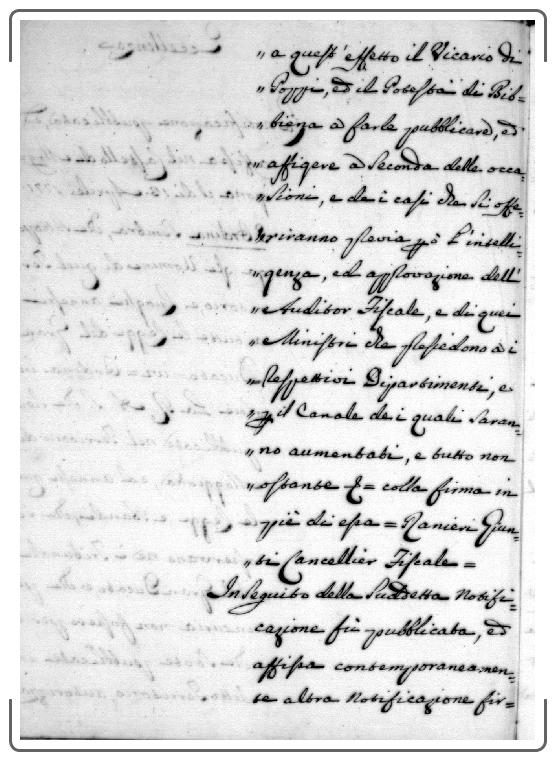 " a quest'effetto il Vicario di
" Poppi, ed il Potestà di Bib-
" biena a farle pubblicare, ed
" affigere a seconda delle occa-
" sioni, e dei casi che si offe-
" riranno previa però l'intelli-
" genza, ed approvazione dell'
" Auditor Fiscale, e di quei
" Ministri che presiedono ai
" Respettivi Dipartimenti, e
" p il Canale dei quali saran-
" no aumentati, e tutto non
" ostante &= colla firma in
" piè di essa = Ranieri Giun-
" ti Cancellier Fiscale =
In seguito della suddetta Notifi-
cazione fù pubblicata, ed
affissa contemporaneamen-
te altra Notificazione fir-